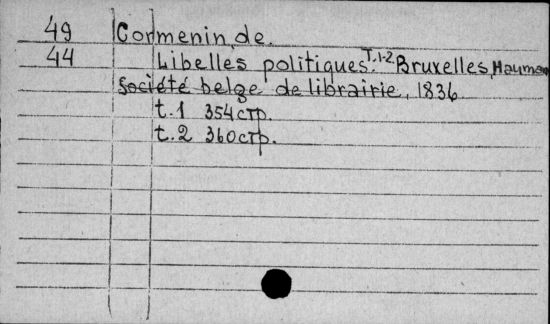 49 Cormenin, de.
44 Libelles politiques. T.1-2 Bruxelles,
Société belge de librairie, 1836
t.1 354 стр.
t.2 360 стр.